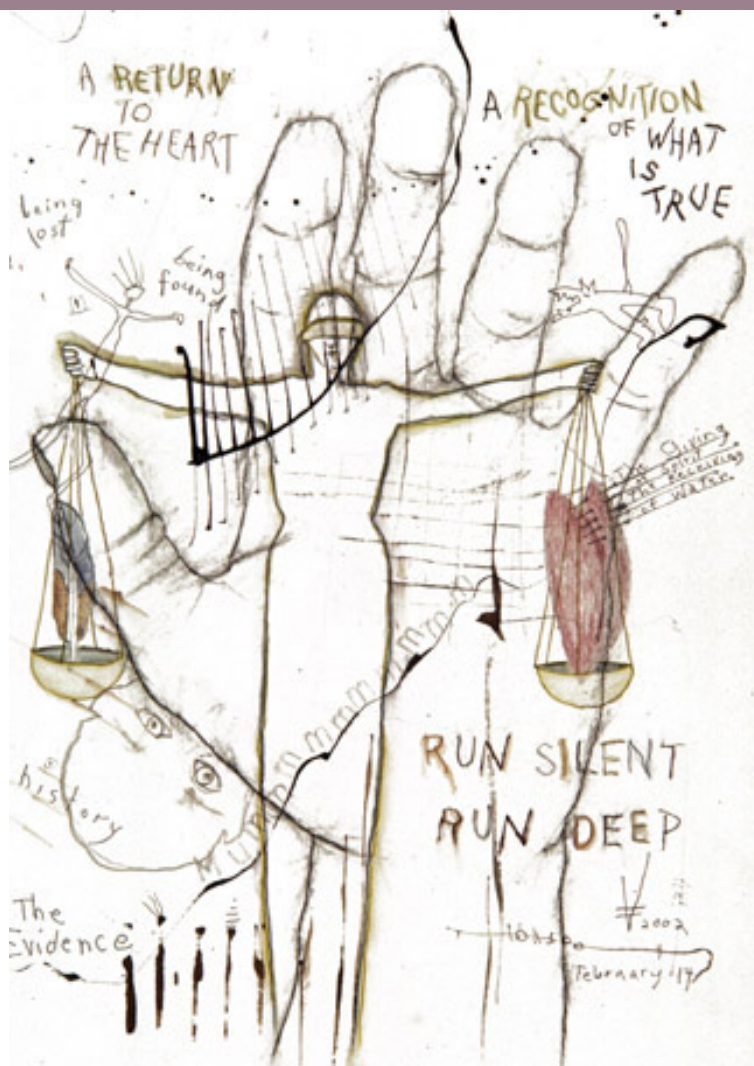 A RETURN
TO
THE HEART
A RECOGNITION
OF WHAT
IS
TRUE
being
lost
being
found
The Giving
Spirit
The Receiving
of Water
RUN SILENT
RUN DEEP
history
The
Evidence
2002
February 14